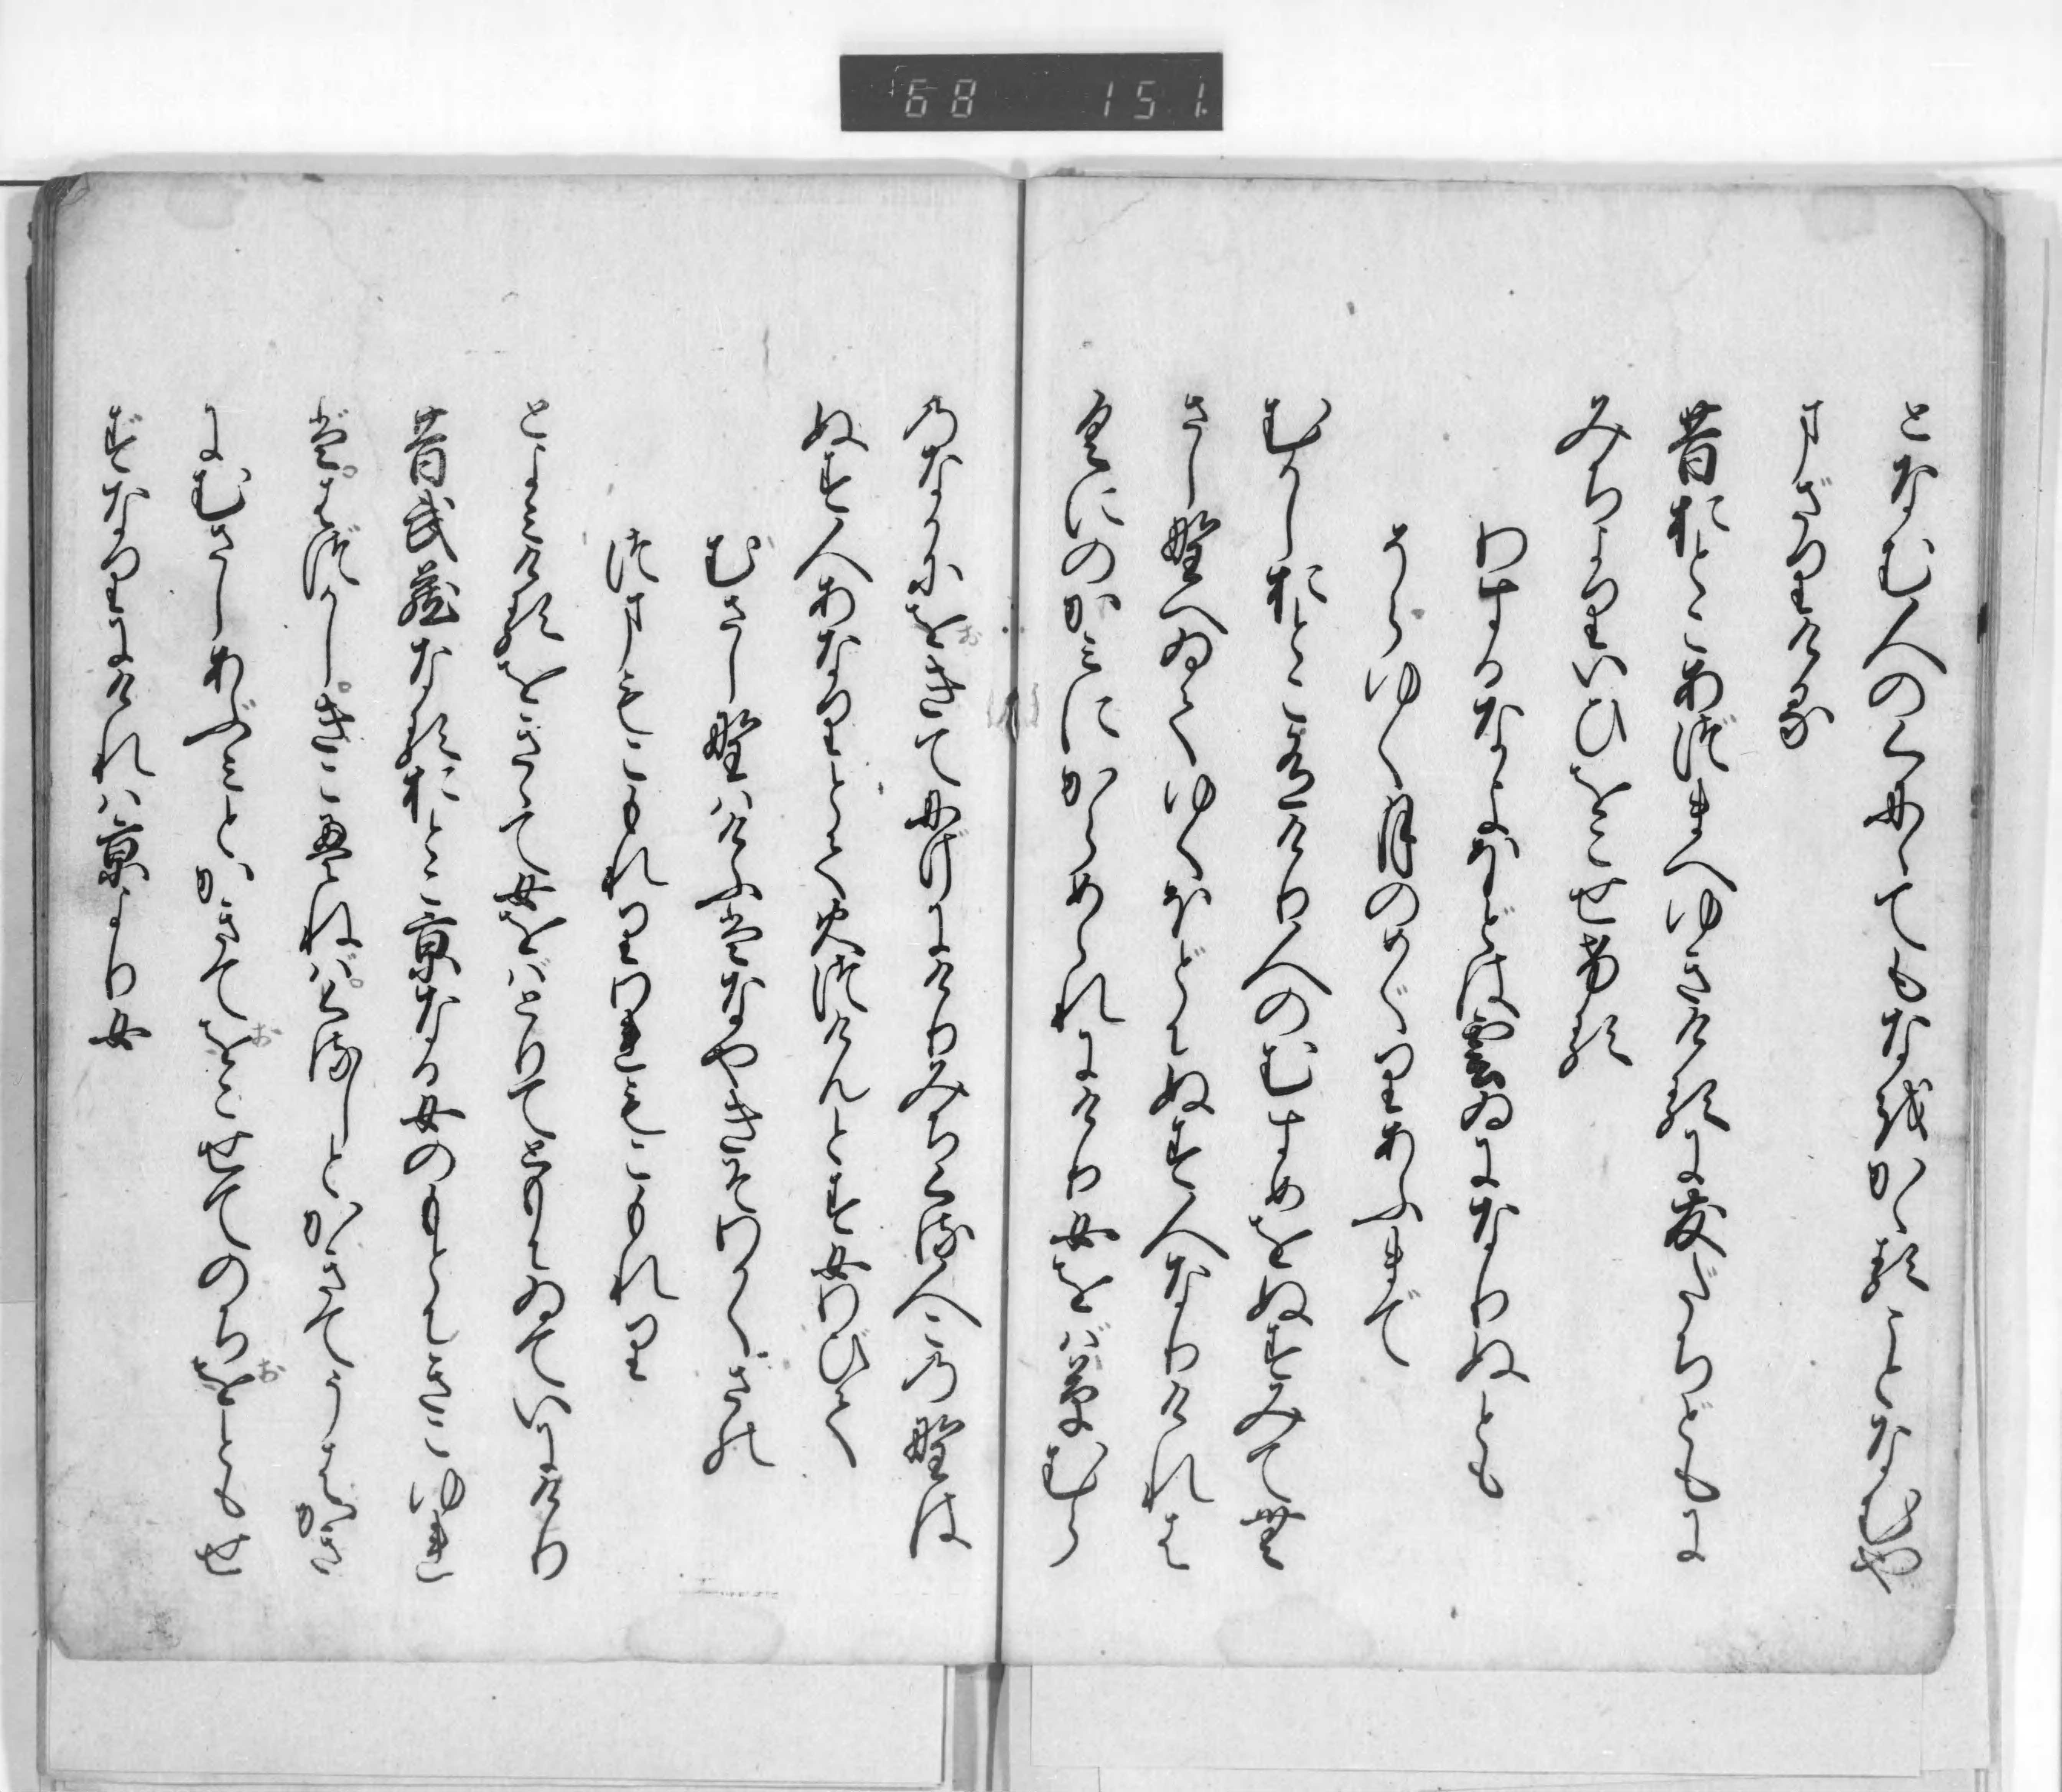 68 151
となむ人のくにゝてもなをかゝることなむや
まざりける
昔おとこあづまへゆきけるに友だちどもに
みちよりいひをこせける
わするなよほどは雲ゐになりぬとも
そらゆく月のめぐりあふまで
むかしおとこ有けり人のむすめをぬすみて武
さし野へゐてゆくほどにぬす人なりければ
国のかみにからめられにけり女をば草むら
のなかにをきてにげにけりみちくる人この野は
ぬす人あなりとて火つけんとす女わびて
むさし野はけふはなやきそわか草の
つまもこもれりわれもこもれり
とよみけるをきゝて女をばとりてともにゐていにけり
昔武蔵なるおとこ京なる女のもとにきこゆれ
ばはづかしきこえねばくるしとかきてうはがき
にむさしあぶみとかきてをこせてのちをともせ
ずなりにければ京より女
お
お
お